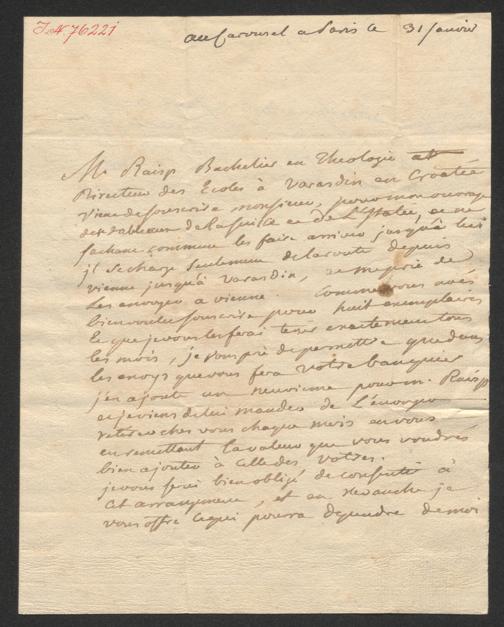 I.N. 76221
au Carousel a Paris le 31 janvier
Mr Raisp Bachelier en Theologie et
Directeur des Ecoles à Varasdin en Croatie
vient de souscrire, monsieur, pour mon ouvrage
des tableaux de la Suisse et de L'Italie, et ne
sachant comment les faire arriver jusqu'à lui
il se charge seulement de la route depuis
vienne jusqu'à Varasdin, et me prie de
les envoyer a vienne. Comme vous avés
bien voulu souscrire pour huit exemplaires
et que je vous les ferai tenir exactement tous
les mois, je vous prie de permettre que dans
les envoys que vous fera votre banquier
j'en ajoute un neuvieme pour m. Raisp
et je viens de lui mander de L'envoyer
retirer ches vous chaque mois en vous
en remettant la valeur que vous voudres
bien ajouter à celle des votres.
je vous serai bien obligé de consentir à
cet arrangement, et en revanche je
vous offre ce qui pourra dependre de moi